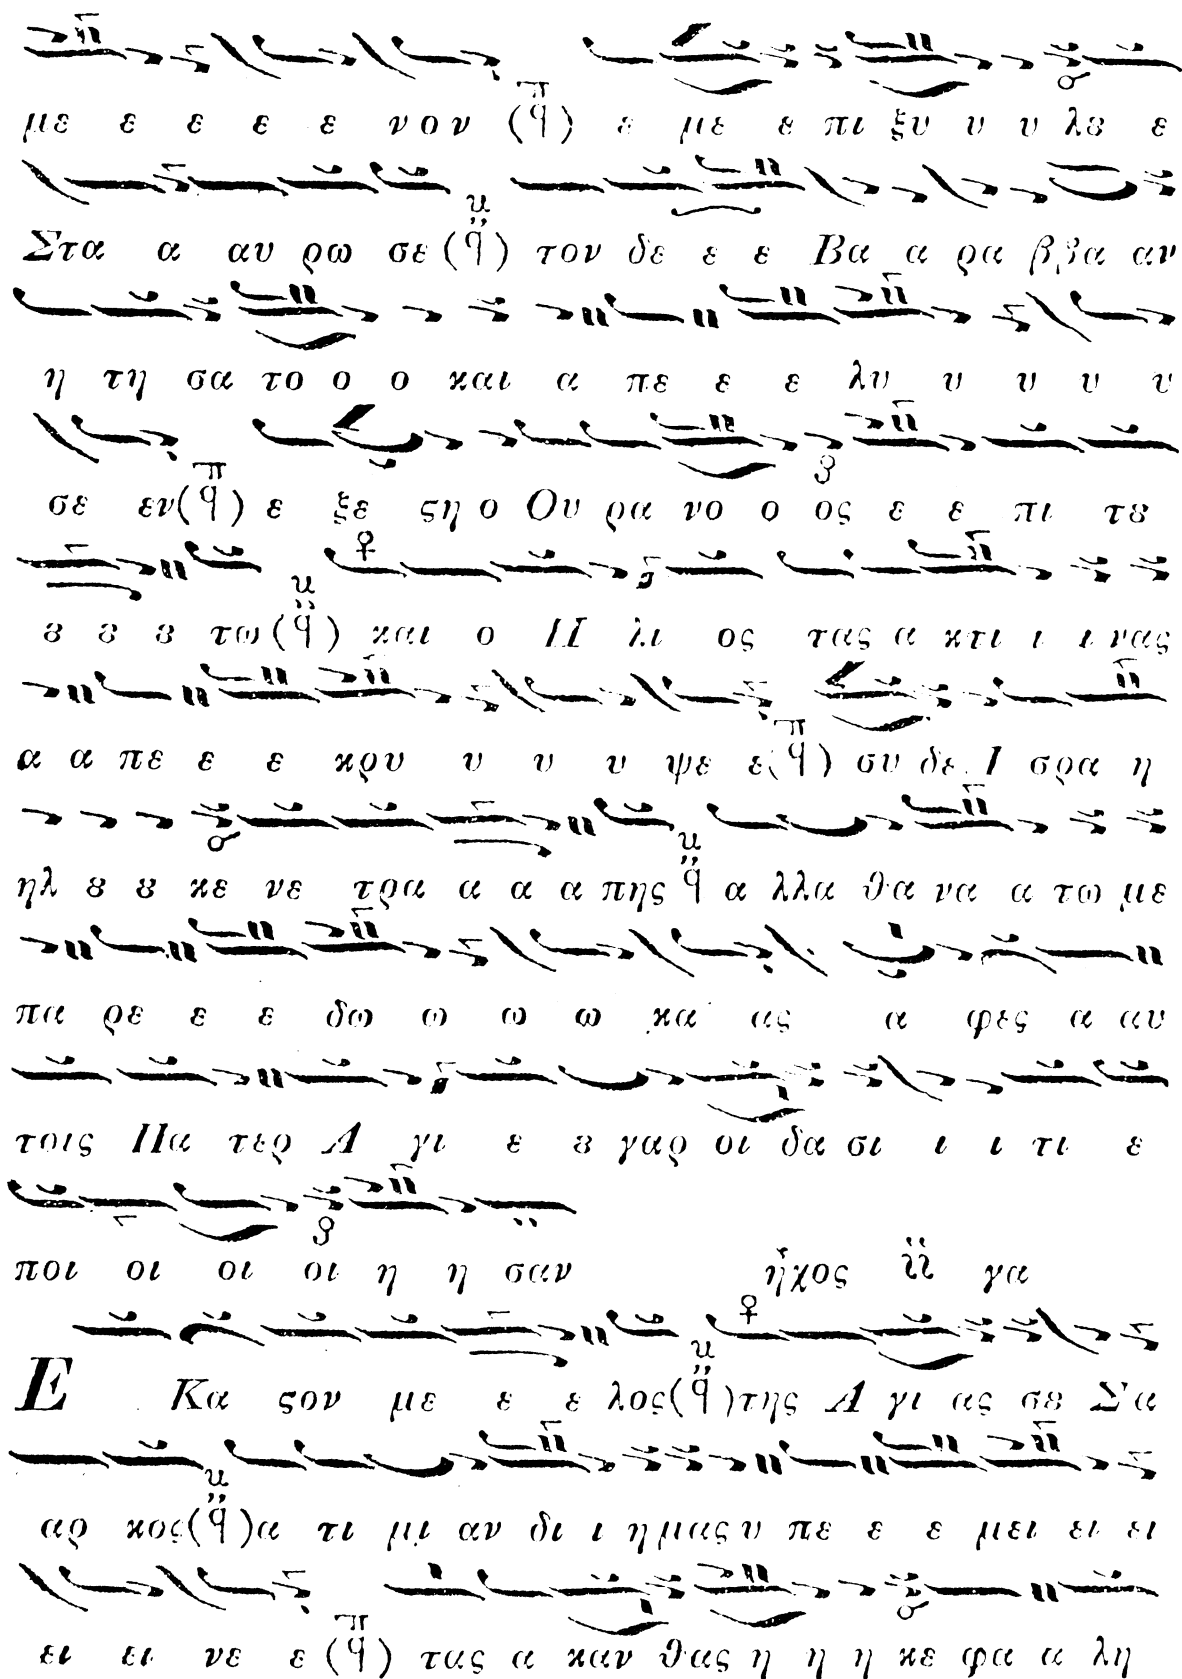 με ε ε ε ε νον (π ϥ) ε με ε πι ξυ υ υ λȣ ε
Στα α αυ ρω σε (ϥ) τον δε ε ε Βα α ρα ββα αν
η τη σα το ο ο και α πε ε ε λυ υ υ υ υ
σε εν (π ϥ) ε ξε ςη ο Ου ρα νο ο ος ε ε πι τȣ
ȣ ȣ ȣ τω (ϥ) και ο Η λι ος τας α κτι ι ι νας
α α πε ε ε κρυ υ υ υ ψε ε (π ϥ) συ δε Ι σρα η
ηλ ȣ ȣ κε νε τρα α α α πης ϥ α λλα θα να α τω με
πα ρε ε ε δω ω ω ω κα ας α φες α αυ
τοις Πα τερ Α γι ε ȣ γαρ οι δα σι ι ι τι ε
ποι οι οι οι η η σαν ἦχος γα
Ε Κα ςον με ε ε λος (ϥ) της Α γι ας σȣ Σα
αρ κος (ϥ) α τι μι αν δι ι η μας υ πε ε ε μει ει ει
ει ει νε ε (π ϥ) τας α καν θας η η η κε φα α λη